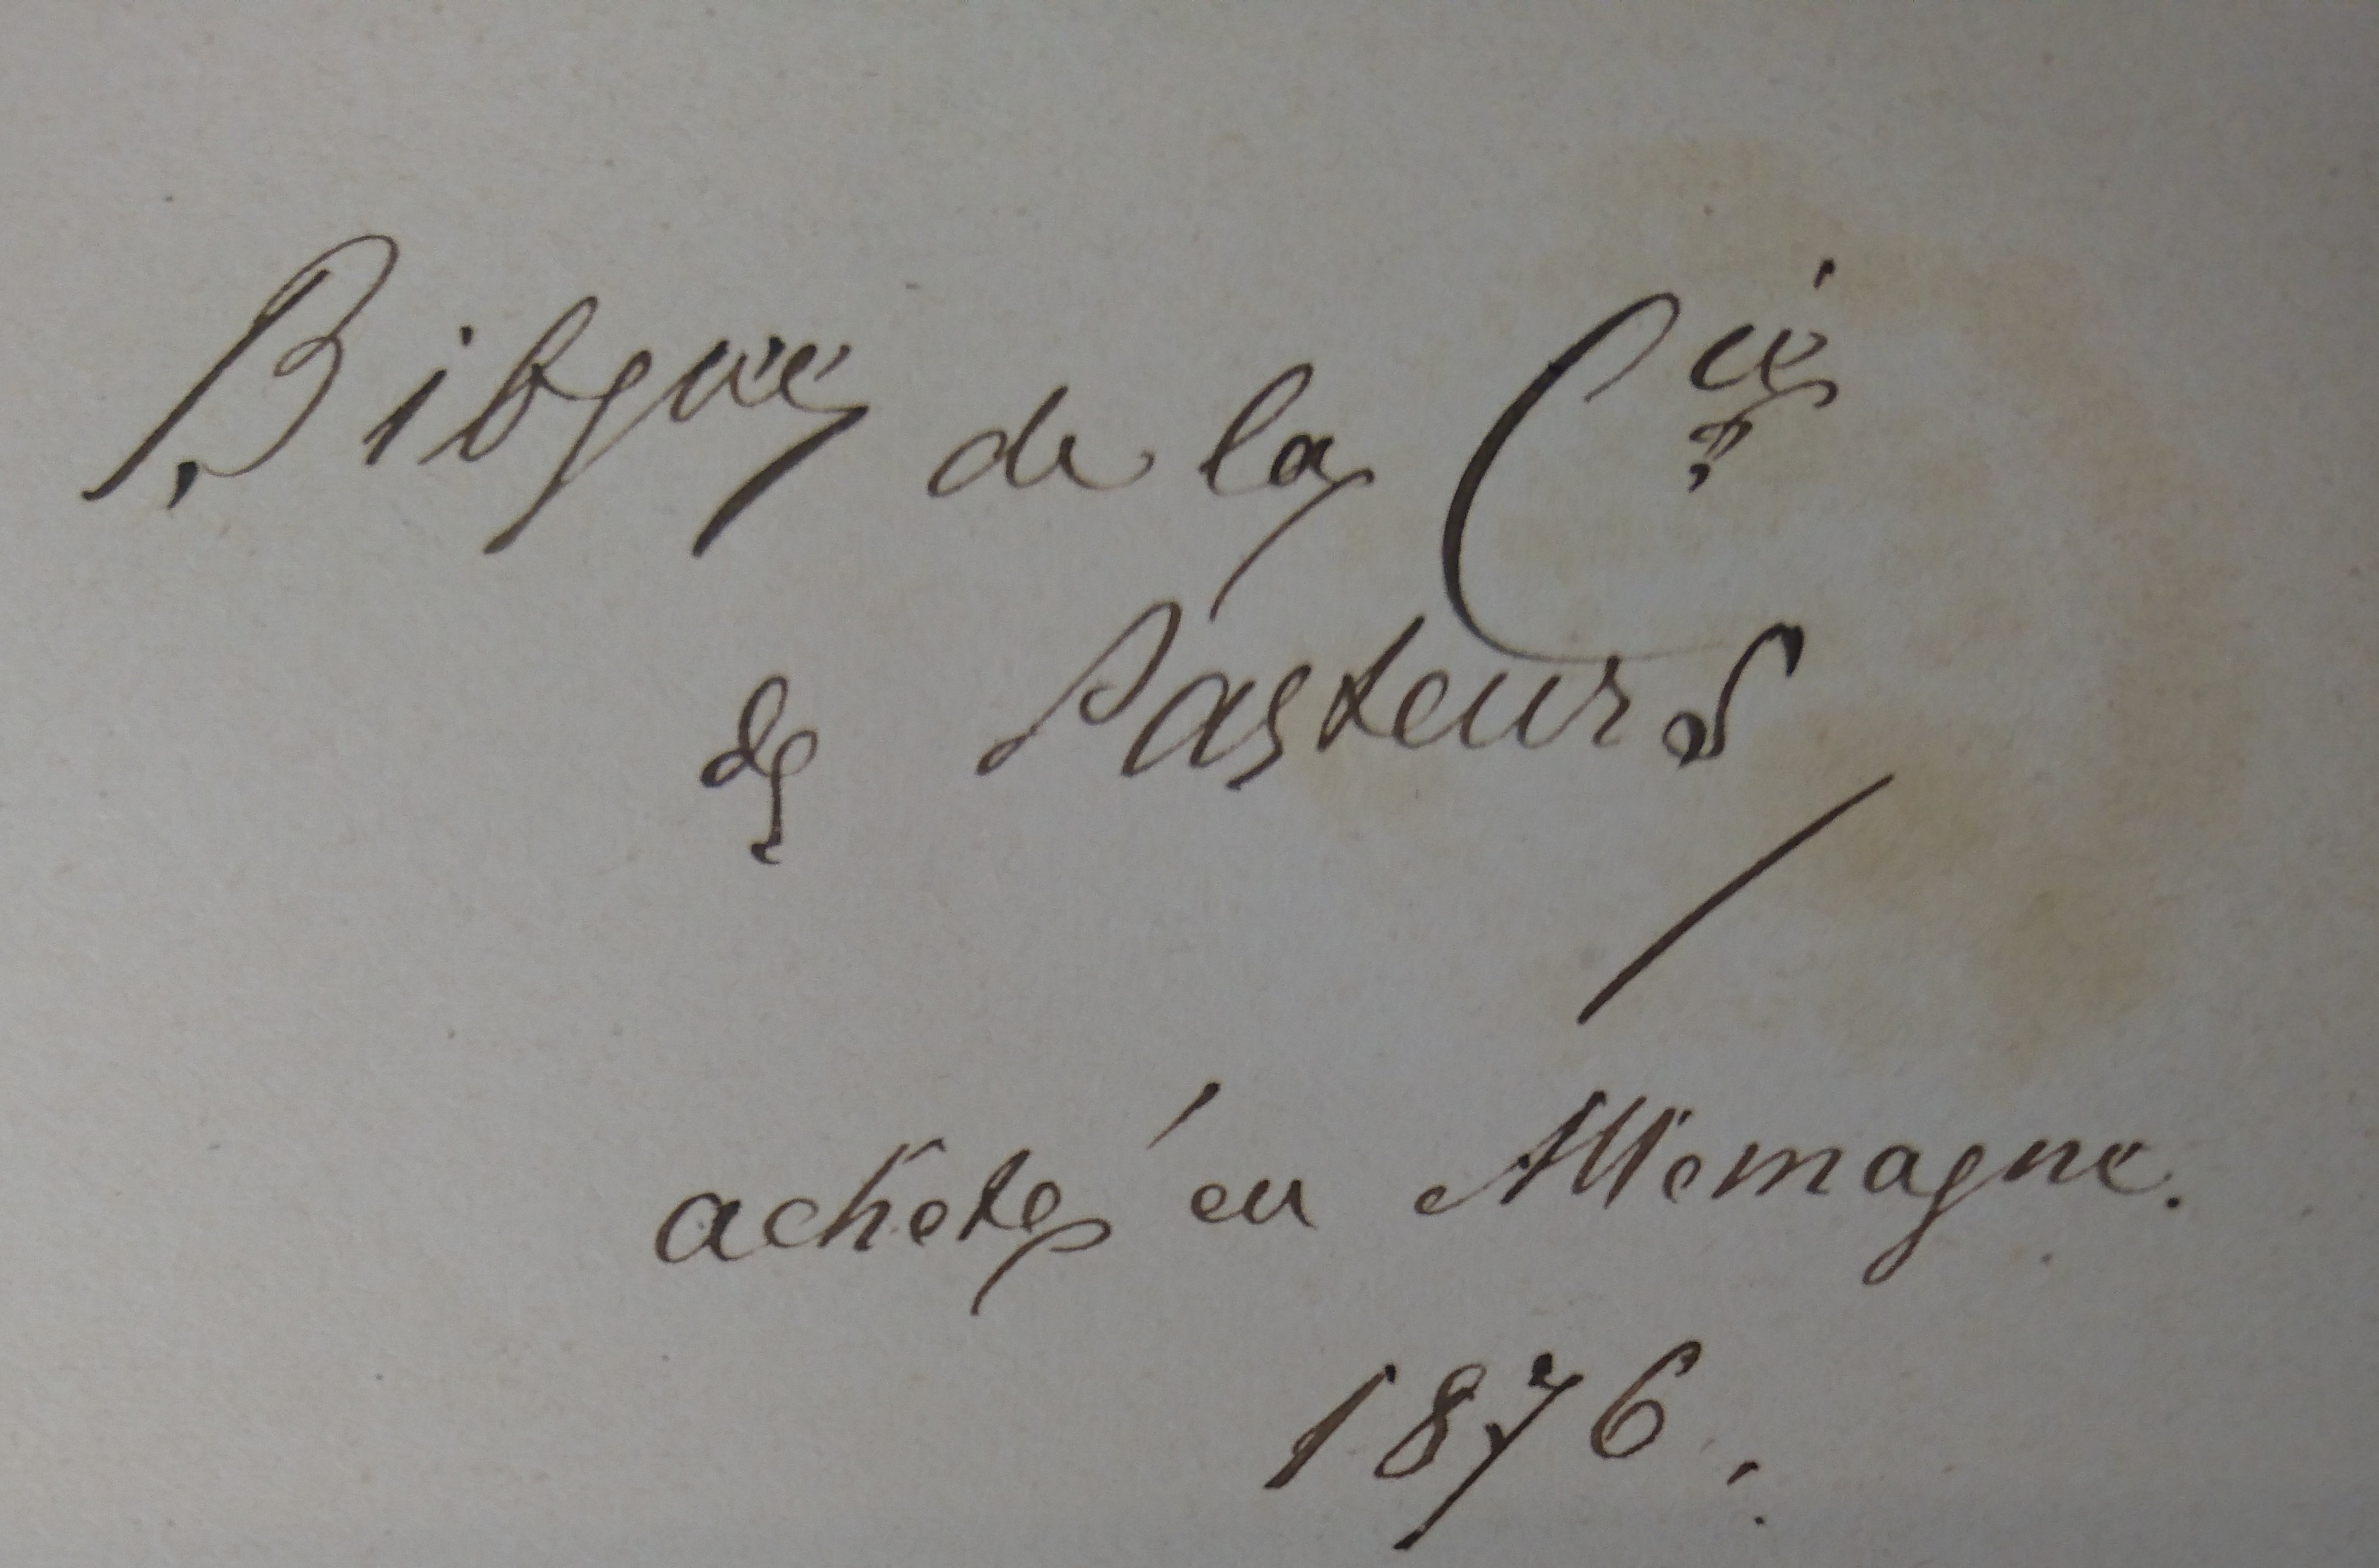 Bibque de la Cie
de Pasteurs
acheté en Allemagne.
1876.